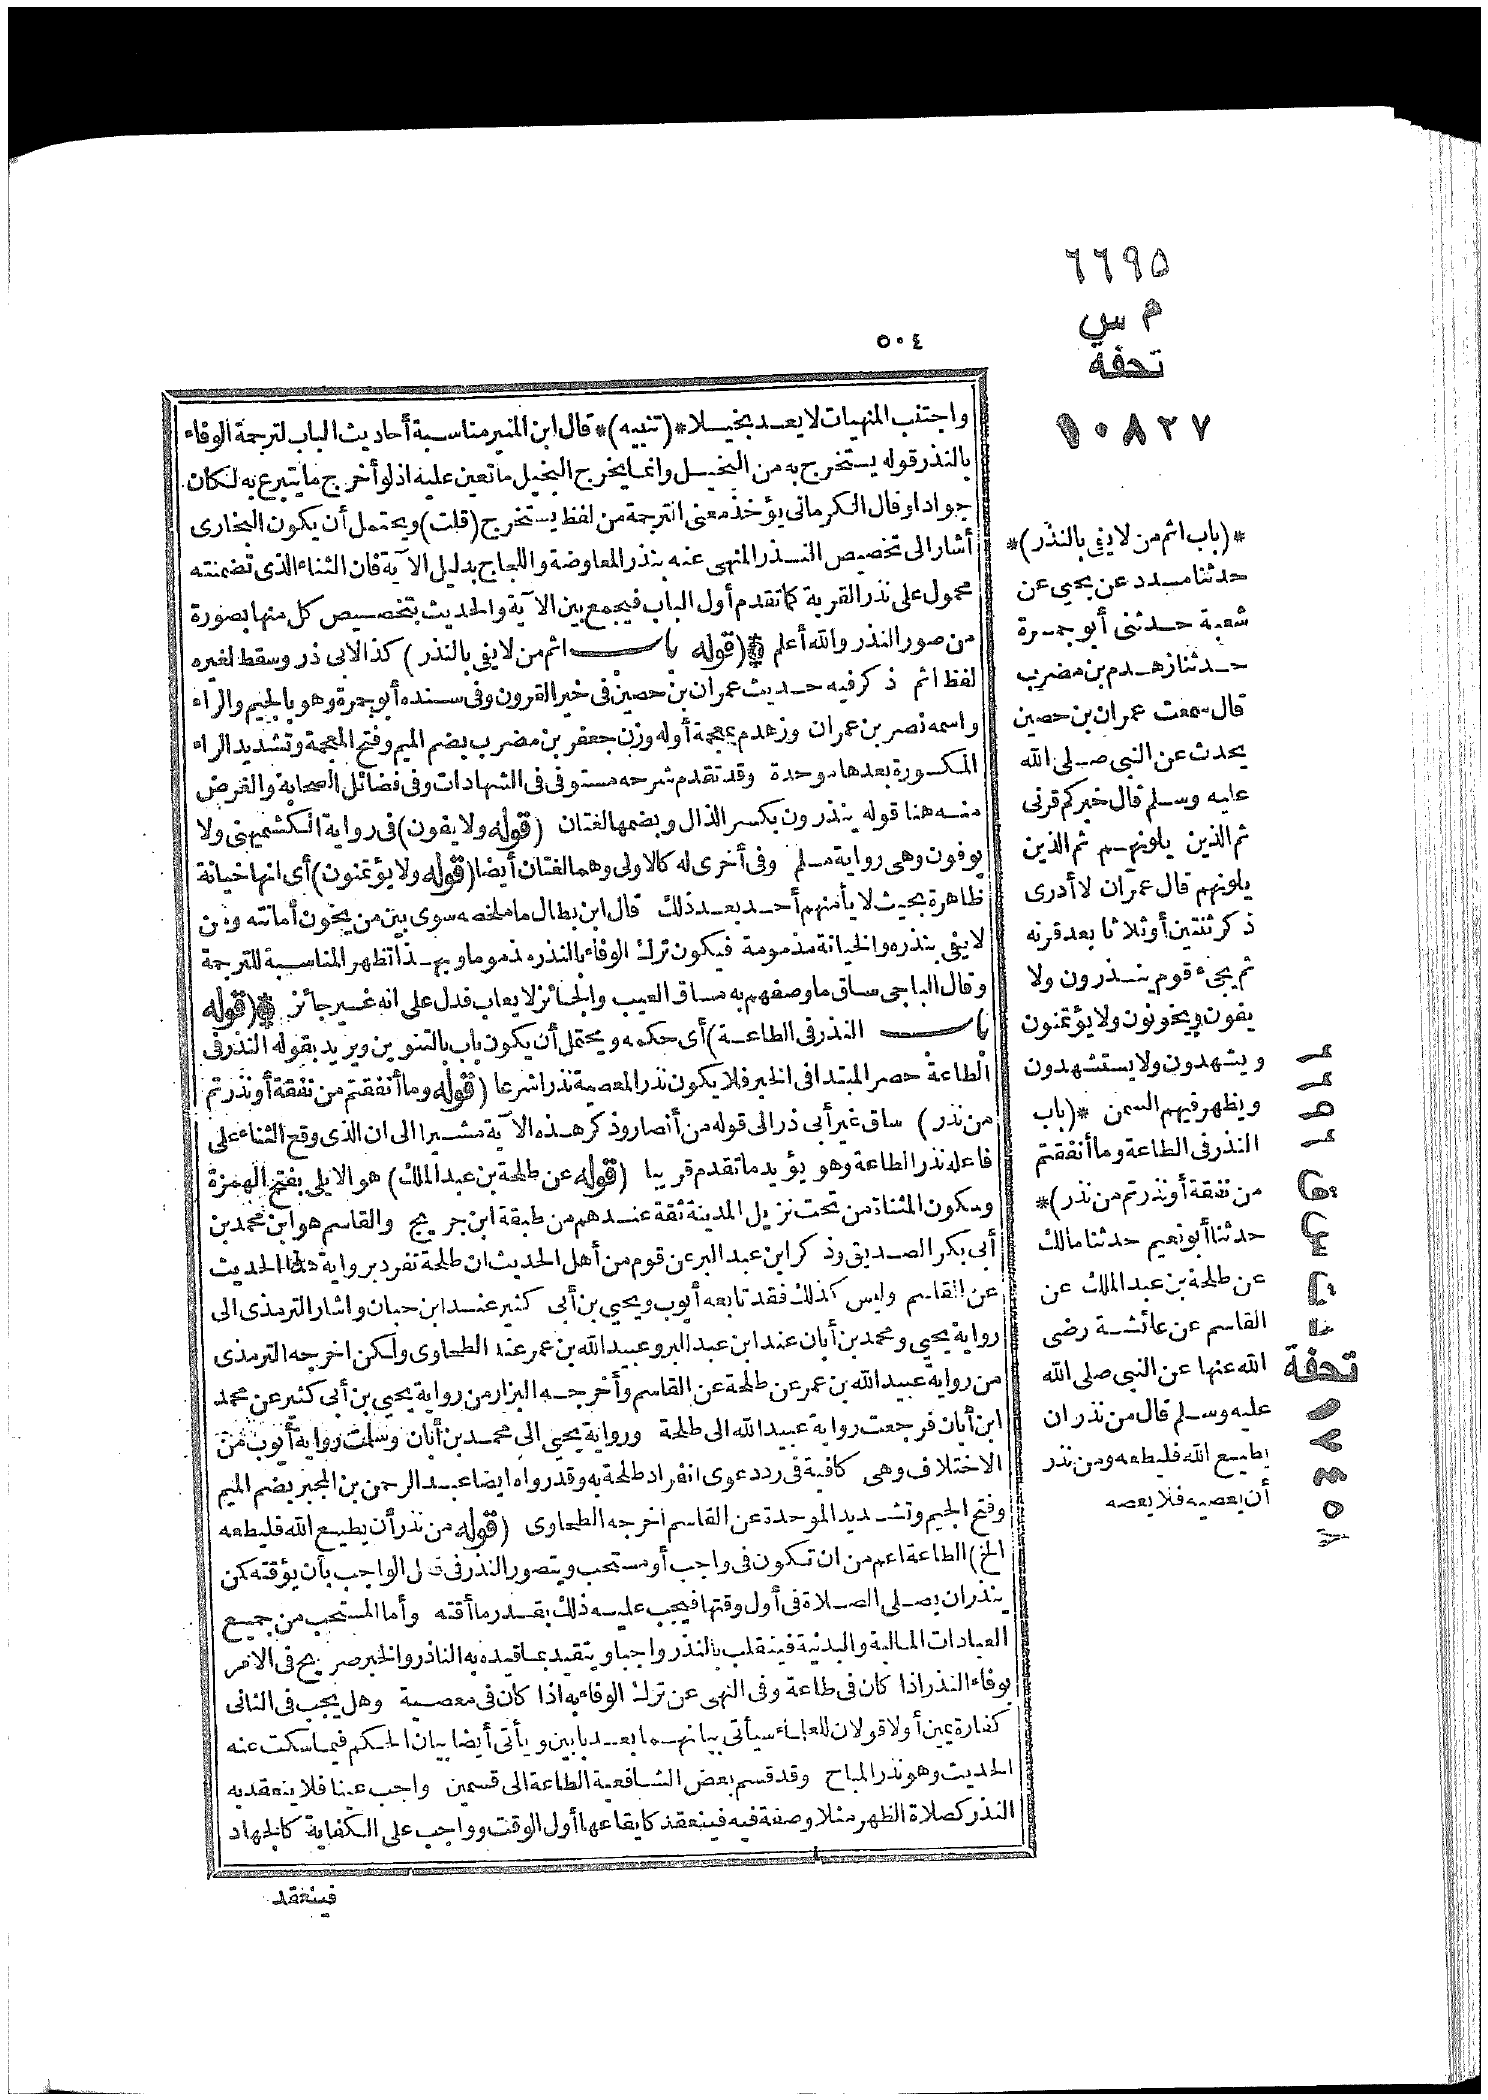 ٥٠٤
واجتنب المنهيات لا يعد بخيلا *(تنبيه)* قال ابن المنير مناسبة أحاديث الباب لترجمة الوفاء
بالنذر قوله يستخرج به من البخيل وانما يخرج البخيل ما تعين عليه اذ لو أخرج ما يتبرع به لكان
جوادا وقال الكرماني يؤخذ معنى الترجمة من لفظ يستخرج (قلت) ويحتمل أن يكون البخارى
أشار الى تخصيص النذر المنهى عنه بنذر المعاوضة واللجاج بدليل الآية فان الثناء الذى تضمنته
محمول على نذر القربة كما تقدم أول الباب فيجمع بين الآية والحديث بتخصيص كل منها بصورة
من صور النذر والله أعلم (قوله باب اثم من لا يفى بالنذر) كذا لابى ذر وسقط لغيره
لفظ اثم ذكر فيه حديث عمران بن حصين فى خير القرون وفى سنده أبو جمرة وهو بالجيم والراء
واسمه نصر بن عمران وزهدم بمعجمة أوله وزن جعفر بن مضرب بضم الميم وفتح المعجمة وتشديد الراء
المكسورة بعدها موحدة وقد تقدم شرحه مستوفى فى الشهادات وفى فضائل الصحابة والغرض
منه هنا قوله ينذرون بكسر الذال وبضمها لغتان (قوله ولا يفون) فى رواية الكشميهنى ولا
يوفون وهى رواية مسلم وفى أخرى له كالاولى وهما لغتان أيضا (قوله ولا يؤتمنون) أى انها خيانة
ظاهرة بحيث لا يأمنهم أحد بعد ذلك قال ابن بطال ما ملخصه سوى بين من يخون أمانته ومن
لا يفى بنذره والخيانة مذمومة فيكون ترك الوفاء بالنذر مذموما وبهذا تظهر المناسبة للترجمة
وقال الباجى ساق ما وصفهم به مساق العيب والجائز لا يعاب فدل على انه غير جائز (قوله
باب النذر فى الطاعة) أى حكمه ويحتمل أن يكون باب بالتنوين ويريد بقوله النذر فى
الطاعة حصر المبتدا فى الخبر فلا يكون نذر المعصية نذرا شرعا (قوله وما أنفقتم من نفقة أو نذرتم
من نذر) ساق غير أبى ذر الى قوله من أنصار وذكر هذه الآية مشيرا الى ان الذى وقع الثناء على
فاعله نذر الطاعة وهو يؤيد ما تقدم قريبا (قوله عن طلحة بن عبد الملك) هو الايلى بفتح الهمزة
وسكون المثناة من تحت نزيل المدينة ثقة عندهم من طبقة ابن جريج والقاسم هو ابن محمد بن
أبى بكر الصديق وذكر ابن عبد البر عن قوم من أهل الحديث ان طلحة تفرد برواية هذا الحديث
عن القاسم وليس كذلك فقد تابعه أيوب ويحيى بن أبى كثير عند ابن حبان واشار الترمذى الى
رواية يحيى ومحمد بن أبان عند ابن عبد البر وعبيد الله بن عمر عند الطحاوى ولكن اخرجه الترمذى
من رواية عبيد الله بن عمر عن طلحة عن القاسم وأخرجه البزار من رواية يحيى بن أبى كثير عن محمد
ابن أبان فرجعت رواية عبيد الله الى طلحة ورواية يحيى الى محمد بن أبان وسلمت رواية أيوب من
الاختلاف وهى كافية فى رد دعوى انفراد طلحة به وقد رواه ايضا عبد الرحمن بن المجبر بضم الميم
وفتح الجيم وتشديد الموحدة عن القاسم اخرجه الطحاوى (قوله من نذر أن يطيع الله فليطعه
الخ) الطاعة اعم من ان تكون فى واجب أو مستحب ويتصور النذر فى فعل الواجب بأن يؤقته كمن
ينذر ان يصلى الصلاة فى أول وقتها فيجب عليه ذلك بقدر ما أقته وأما المستحب من جميع
العبادات المالية والبدنية فينقلب بالنذر واجبا ويتقيد بما قيده به الناذر والخبر صريح فى الامر
بوفاء النذر اذا كان فى طاعة وفى النهى عن ترك الوفاء به اذا كان فى معصية وهل يجب فى الثانى
كفارة يمين أو لا قولان للعلماء سيأتى بيانهما بعد بابين ويأتى أيضا بيان الحكم فيما سكت عنه
الحديث وهو نذر المباح وقد قسم بعض الشافعية الطاعة الى قسمين واجب عينا فلا ينعقد به
النذر كصلاة الظهر مثلا وصفة فيه فينعقد كايقاعها أول الوقت وواجب على الكفاية كالجهاد
فينعقد
٦٦٩٥
م س
تحفة
١٠٨٢٧
*(باب اثم من لا يفى بالنذر)*
حدثنا مسدد عن يحيى عن
شعبة حدثنى أبو جمرة
حدثنا زهدم بن مضرب
قال سمعت عمران بن حصين
يحدث عن النبى صلى الله
عليه وسلم قال خيركم قرنى
ثم الذين يلونهم ثم الذين
يلونهم قال عمران لا أدرى
ذكر ثنتين أو ثلاثا بعد قرنه
ثم يجىء قوم ينذرون ولا
يفون ويخونون ولا يؤتمنون
ويشهدون ولا يستشهدون
ويظهر فيهم السمن *(باب
النذر فى الطاعة وما أنفقتم
من نفقة أو نذرتم من نذر)*
حدثنا أبو نعيم حدثنا مالك
عن طلحة بن عبد الملك عن
القاسم عن عائشة رضى
الله عنها عن النبى صلى الله
عليه وسلم قال من نذر ان
يطيع الله فليطعه ومن نذر
أن يعصيه فلا يعصه
تحفة